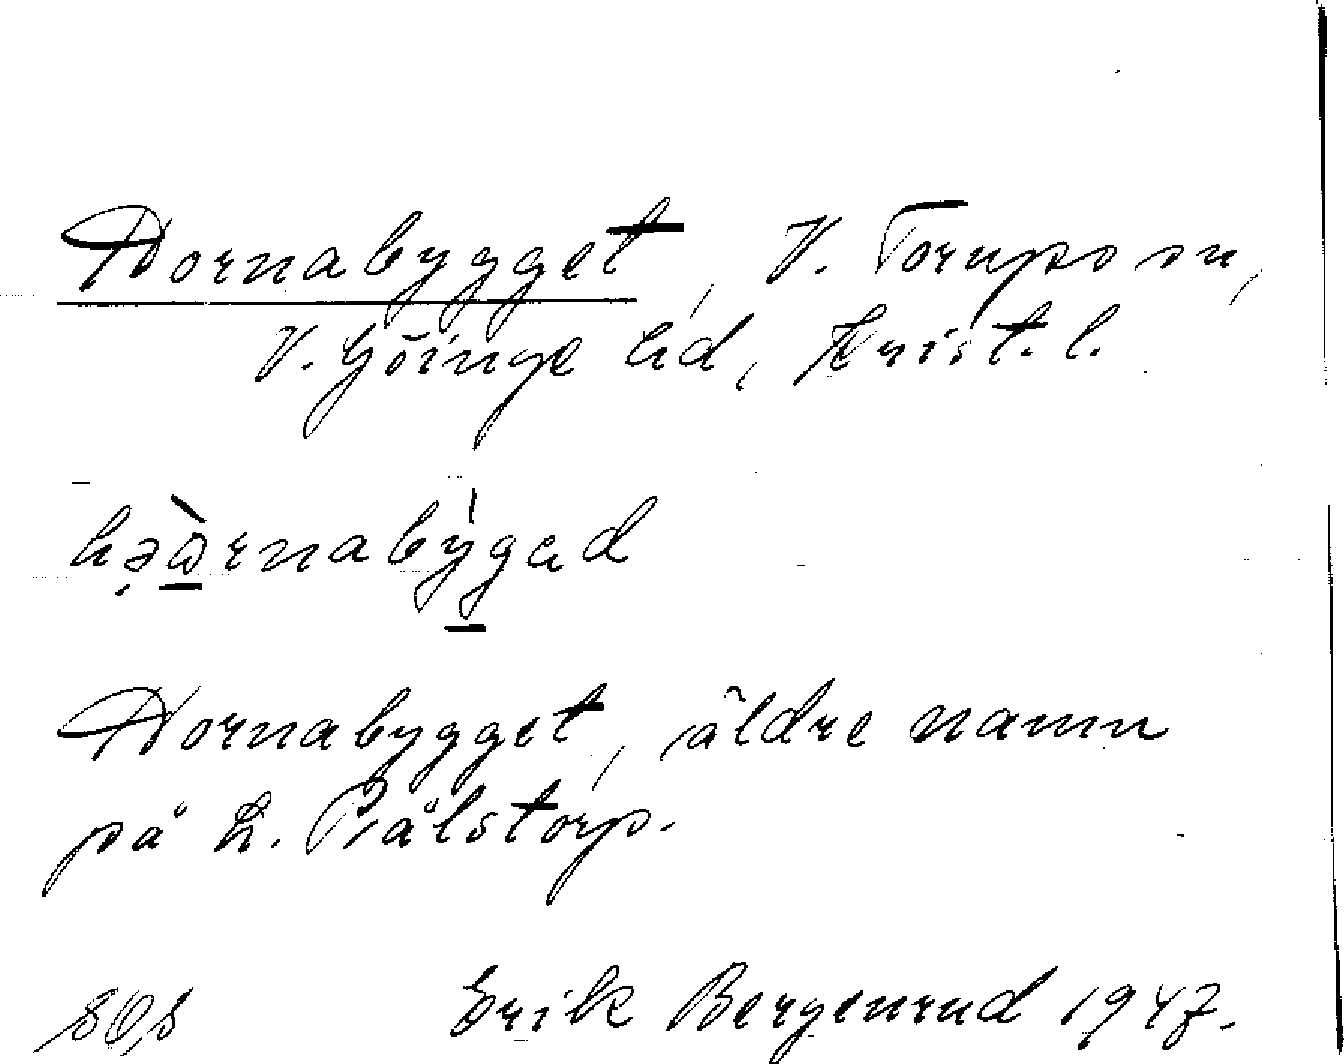 Hornabygget, V. Torups sn,
V. Göinge hd, Krist. l.
Hornabygget, äldre namn
på L. Pålstorp.
Erik Bergenrud 1947.